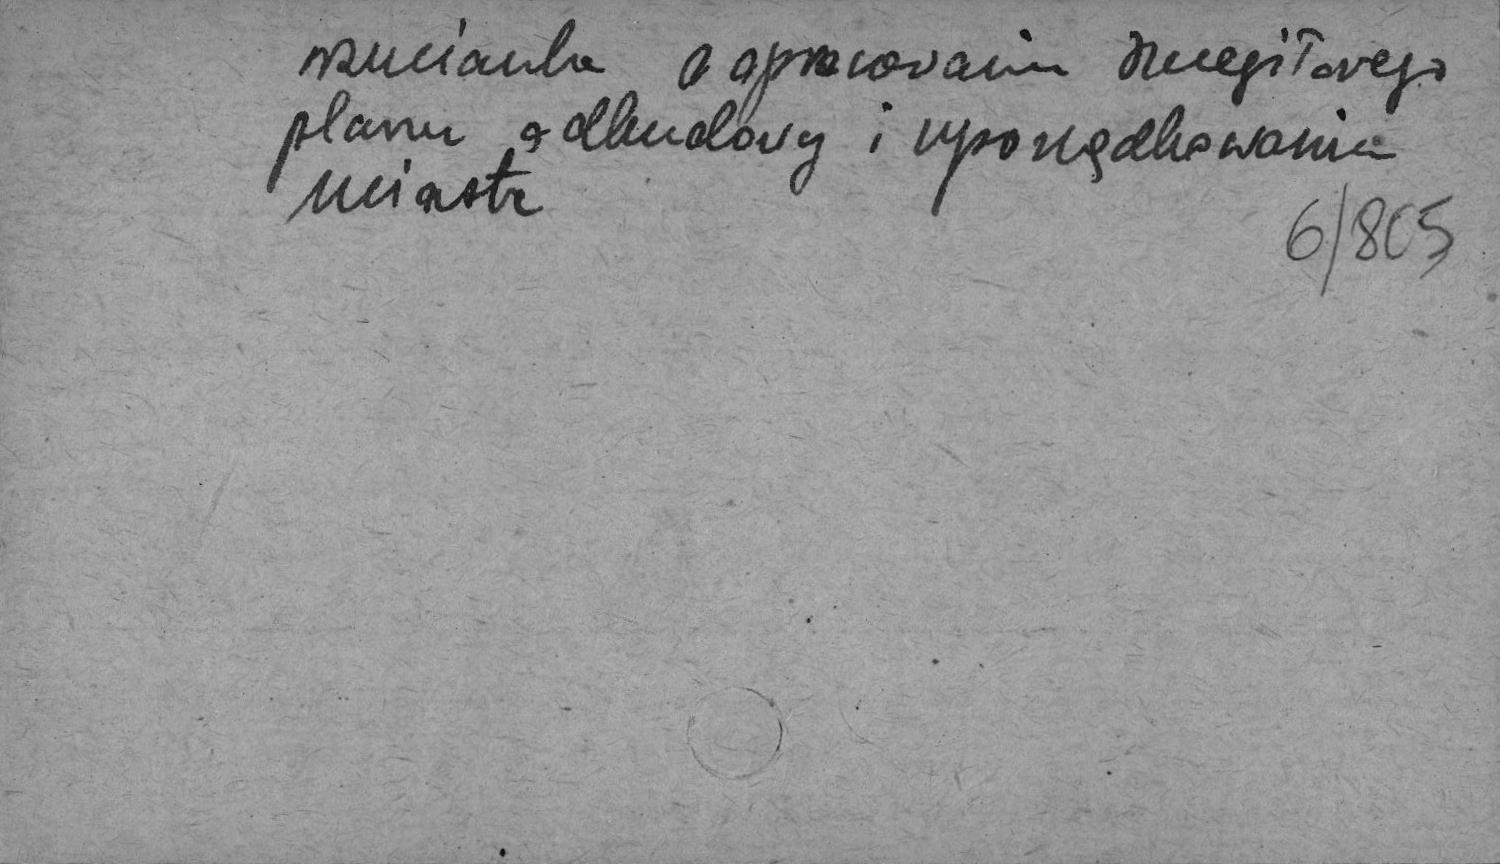 wzmianka o opracowaniu szczegółowego
planu odbudowy i uporządkowania
miasta
6/805